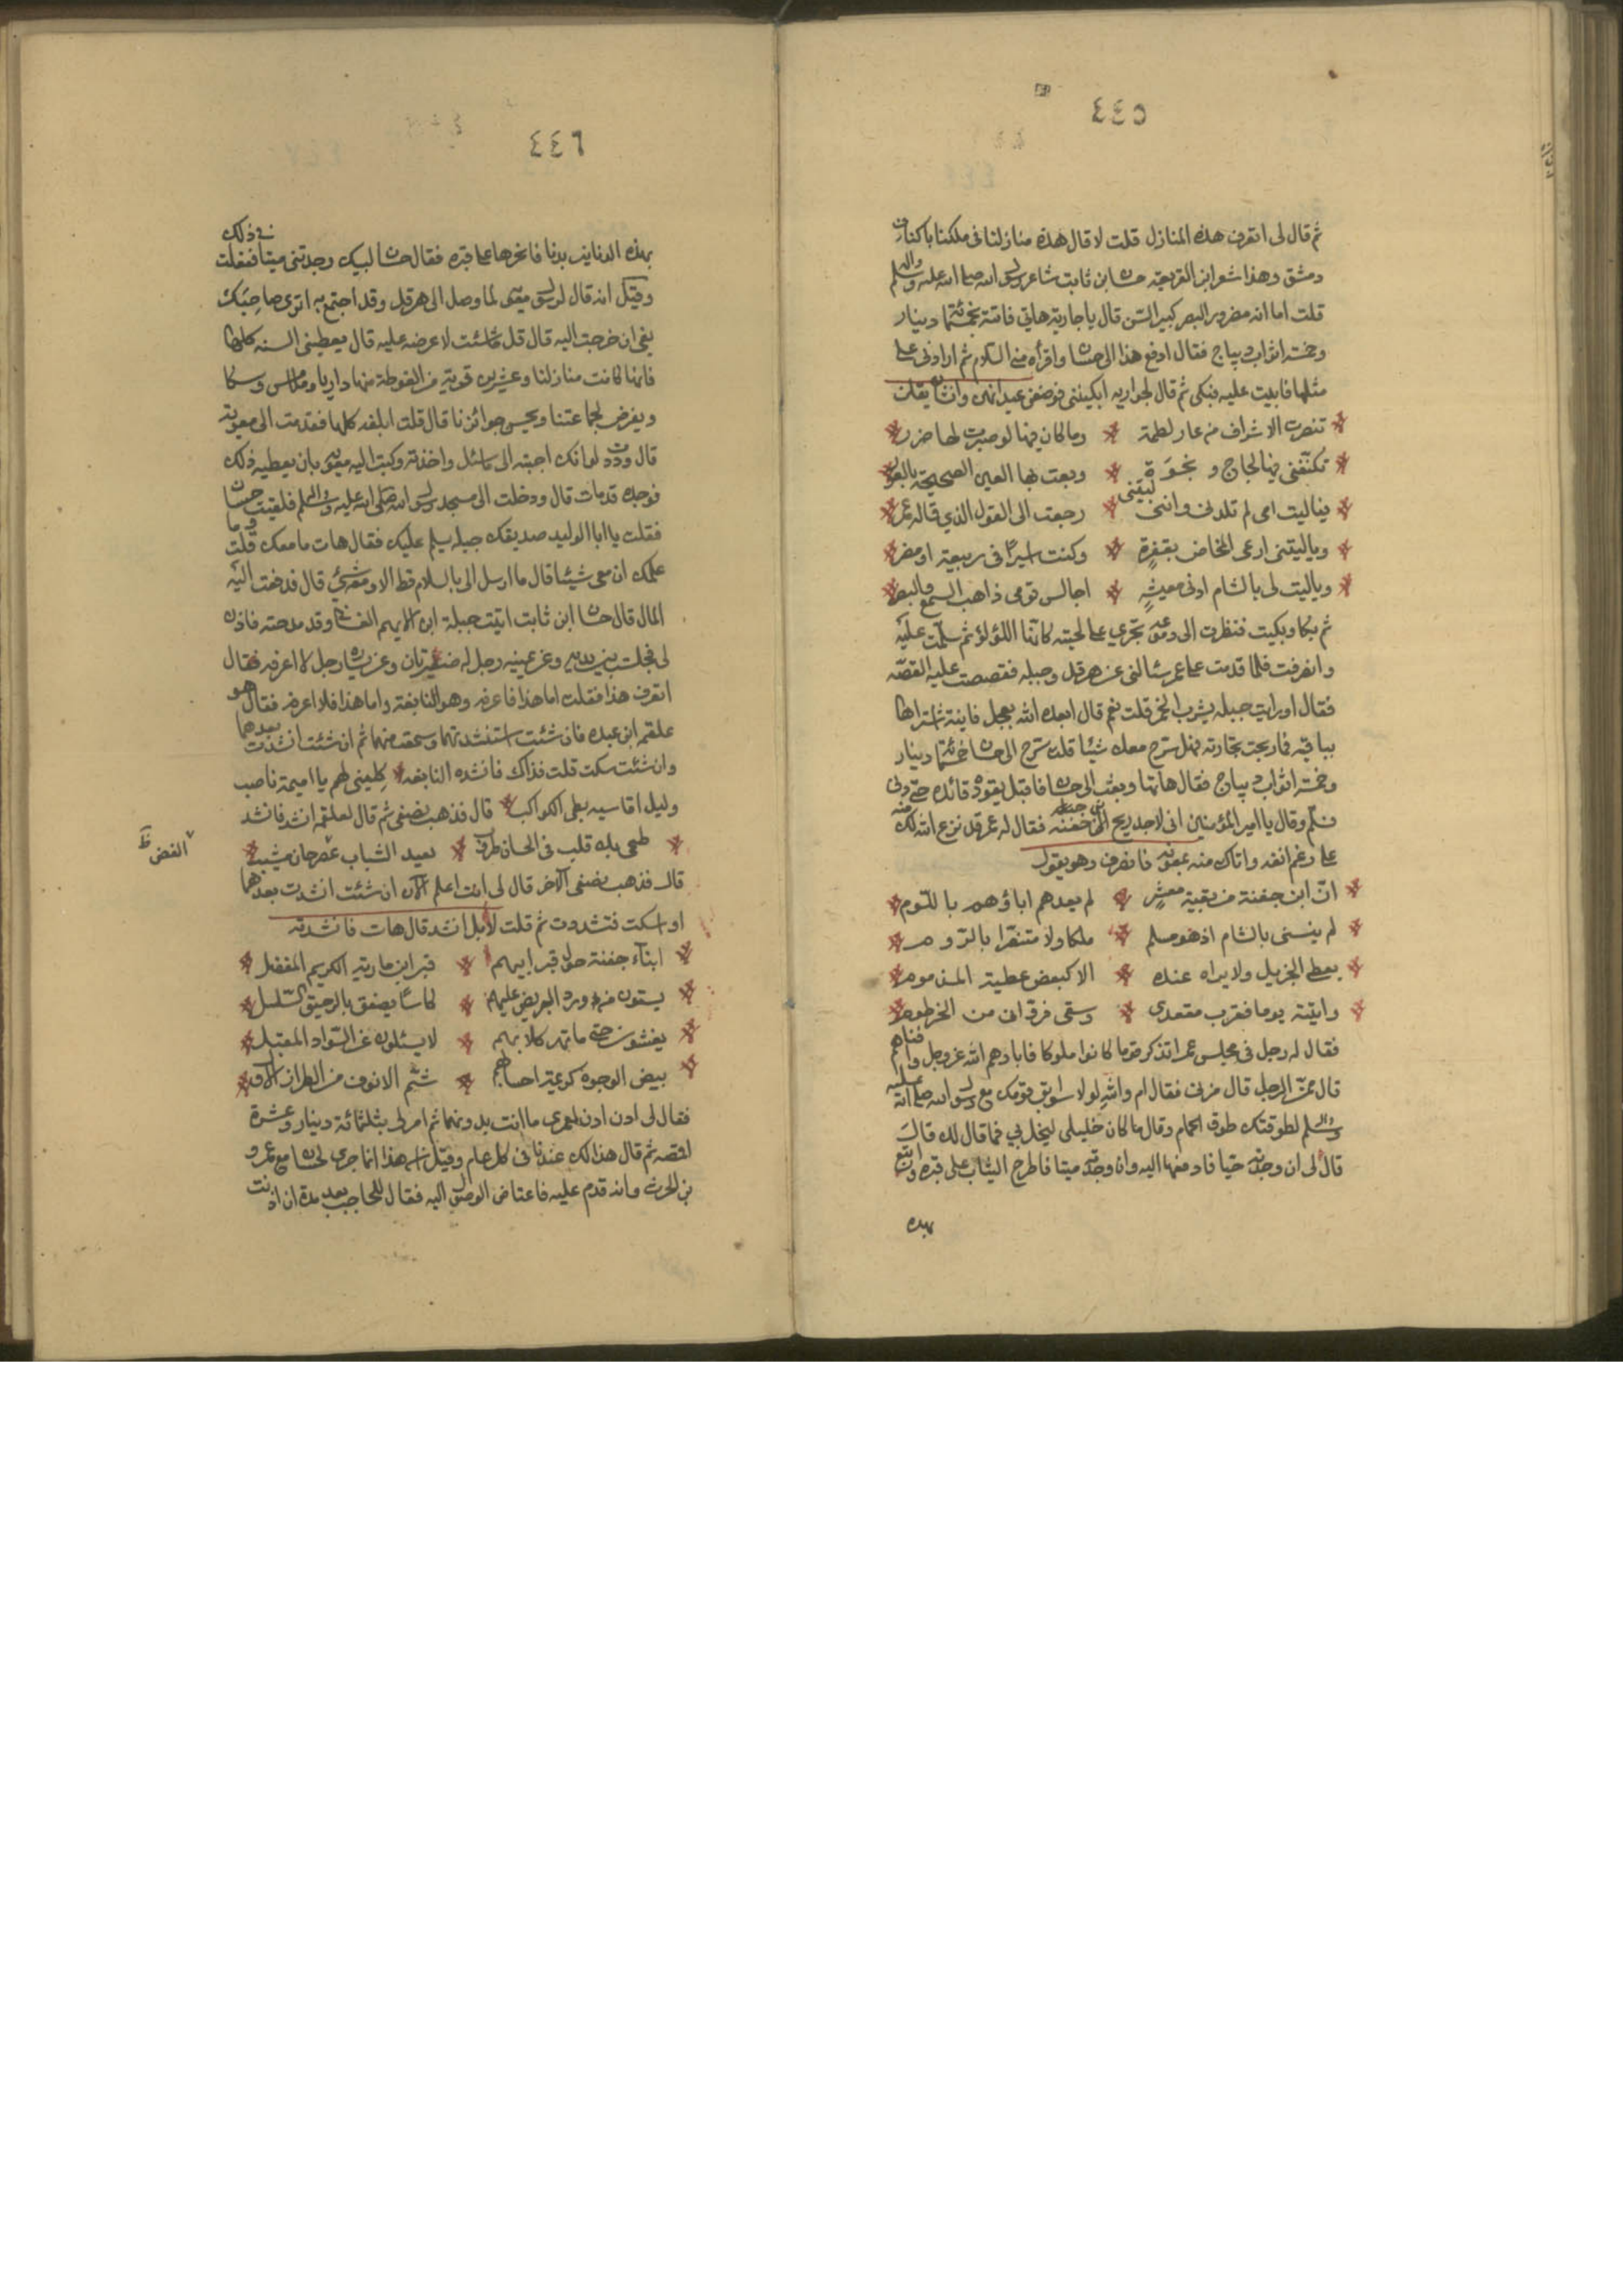 ٤٤٥
ثم قال لی اتعرف هذه المنازل قلت لا قال هذه منازلنا فی ملکنا باکناف
دمشق وهذا شعر ابن الفریعه حسان ابن ثابت شاعر رسول الله صلی الله علیه واله وسلم
قلت اما انه مضرور البصر کبیر السن قال یا جاریة هاتی فاتته بخمسمائة دینار
وخمسة اثواب دیباج فقال ادفع هذا الی حسان واقرأه منی السلام ثم ارادنی علی
مثلها فابیت علیه فبکی ثم قال لجواریه ابکیننی فوضعن عیدانهن وانشأن یقلن
تنصرت الاشراف من عار لطمة وما کان فیها لو صبرت لها ضرر
تکنفنی فیها لجاج و نخوة وبعت بها العین الصحیحة بالعور
فیالیت امی لم تلدنی ولیتنی رجعت الی القول الذی قاله عمر
ویالیتنی ارعی المخاض بقفرة وکنت اسیرا فی ربیعة او مضر
ویالیت لی بالشام ادنی معیشة اجالس قومی ذاهب السمع والبصر
ثم بکا وبکیت فنظرت الی دموعه تجری علی لحیته کانها اللؤلؤ ثم سلمت علیه
وانصرفت فلما قدمت علی عمر سئالنی عن هرقل وجبله فقصصت علیه القصه
فقال اورایت جبله یشرب الخمر قلت نعم قال ابعده الله تعجل فانیة اشتراها
بباقیه فما ربحت تجارته فهل سرح معک شیئا قلت سرح الی حسان خمسمائة دینار
وخمسة اثواب دیباج فقال هاتها وبعث الی حسان فاقبل یقوده قائده حتی دنی
فسلم وقال یا امیر المؤمنین انی لاجد ریح آل جفنه فقال له عمر قد نزع الله لک منه
علی رغم انفه واتاک منه بمعونه فانصرف وهو یقول
ان ابن جفنة من بقیة معشر لم یعدهم اباؤهم باللوم
لم ینسنی بالشام اذ هو مسلم ملکا ولا متنصرا بالروم
یعطی الجزیل ولا یراه عنده الا کبعض عطیة المذموم
واتیته یوما فقرب مقعدی وسقی فروانی من الخرطوم
فقال له رجل فی مجلس عمر اتذکر قوما کانوا ملوکا فابادهم الله عز وجل وافناهم
قال ممن الرجل قال مزنی فقال ام والله لولا سوابق قومک مع رسول الله صلی الله علیه
واله وسلم لطوقتک طوق الحمام وقال ما کان خلیلی لیخل بی فما قال لک قال
قال لی ان وجدته حیا فادفعها الیه وان وجدته میتا فاطرح الثیاب علی قبره وابتع
بهذه
٤٤٦
بهذه الدنانیر بدنا فانحرها علی قبره فقال حسان لیتک وجدتنی میتا ففعلت ذلک بی
وقیل انه قال لرسول معویه لما وصل الی هرقل وقد اجتمع به اتری صاحبک
یفی ان خرجت الیه قال قل ما شئت لاعرضه علیه قال یعطینی السنه کلها
فانها کانت منازلنا وعشرین قریة من الغوطة منها داریا و وسکا
ویفرض لجماعتنا ویحسن جوائزنا قال قلت ابلغه کلها فقدمت الی معویة
قال وددت لو انک اجبته الی ما سئل واخذته وکتب الیه معویه بان یعطیه ذلک
فوجده قد مات قال ودخلت الی مسجد رسول الله صلی الله علیه واله وسلم فلقیت حسان
فقلت یا ابا الولید صدیقک جبله یسلم علیک فقال هات ما معک قلت وما
علمک ان معی شیئا قال ما ارسل الی بالسلام قط الا ومعه شئ قال فدفعت الیه
المال قال حسان ابن ثابت اتیت جبلة ابن الایهم الغسانی وقد مدحته فاذن
لی فجلست بین یدیه وعن یمینه رجل له ضفیرتان وعن یساره رجل لا اعرفه فقال
اتعرف هذا فقلت اما هذا فاعرفه وهو النابغة واما هذا فلا اعرفه فقال هو
علقمه ابن عبده فان شئت استنشدتهما وسمعت منهما ثم ان شئت انشدت بعدهما
وان شئت سکت قلت فذاک فانشده النابغه کلینی لهم یا امیمة ناصب
ولیل اقاسیه بطی الکواکب قال فذهب نصفی ثم قال لعلقمه انشد فانشد
طحی بک قلب فی الحسان طروب بعید الشباب عصر حان مشیب
قال فذهب نصفی الآخر قال لی انت اعلم الآن ان شئت انشدت بعدهما
او اسکت فتشددت ثم قلت لا بل انشد قال هات فانشدته
ابناء جفنة حول قبر ابیهم قبر ابن ماریة الکریم المفضل
یسقون من ورد البریص علیهم کاسا یصفق بالرحیق السلسل
یغشون حتی ما تهر کلابهم لا یسئلون عن السواد المقبل
بیض الوجوه کریمة احسابهم شم الانوف من الطراز الاول
فقال لی ادن ادن لعمری ما انت بدونهما ثم امر لی بثلثمائة دینار وعشرة
اقمصه ثم قال هذا لک عندنا فی کل عام وقیل ان هذا انما جری لحسان مع عمرو
بن الحرث وانه قدم علیه فاعتاص الوصول الیه فقال للحاجب بعد مدة ان اذنت